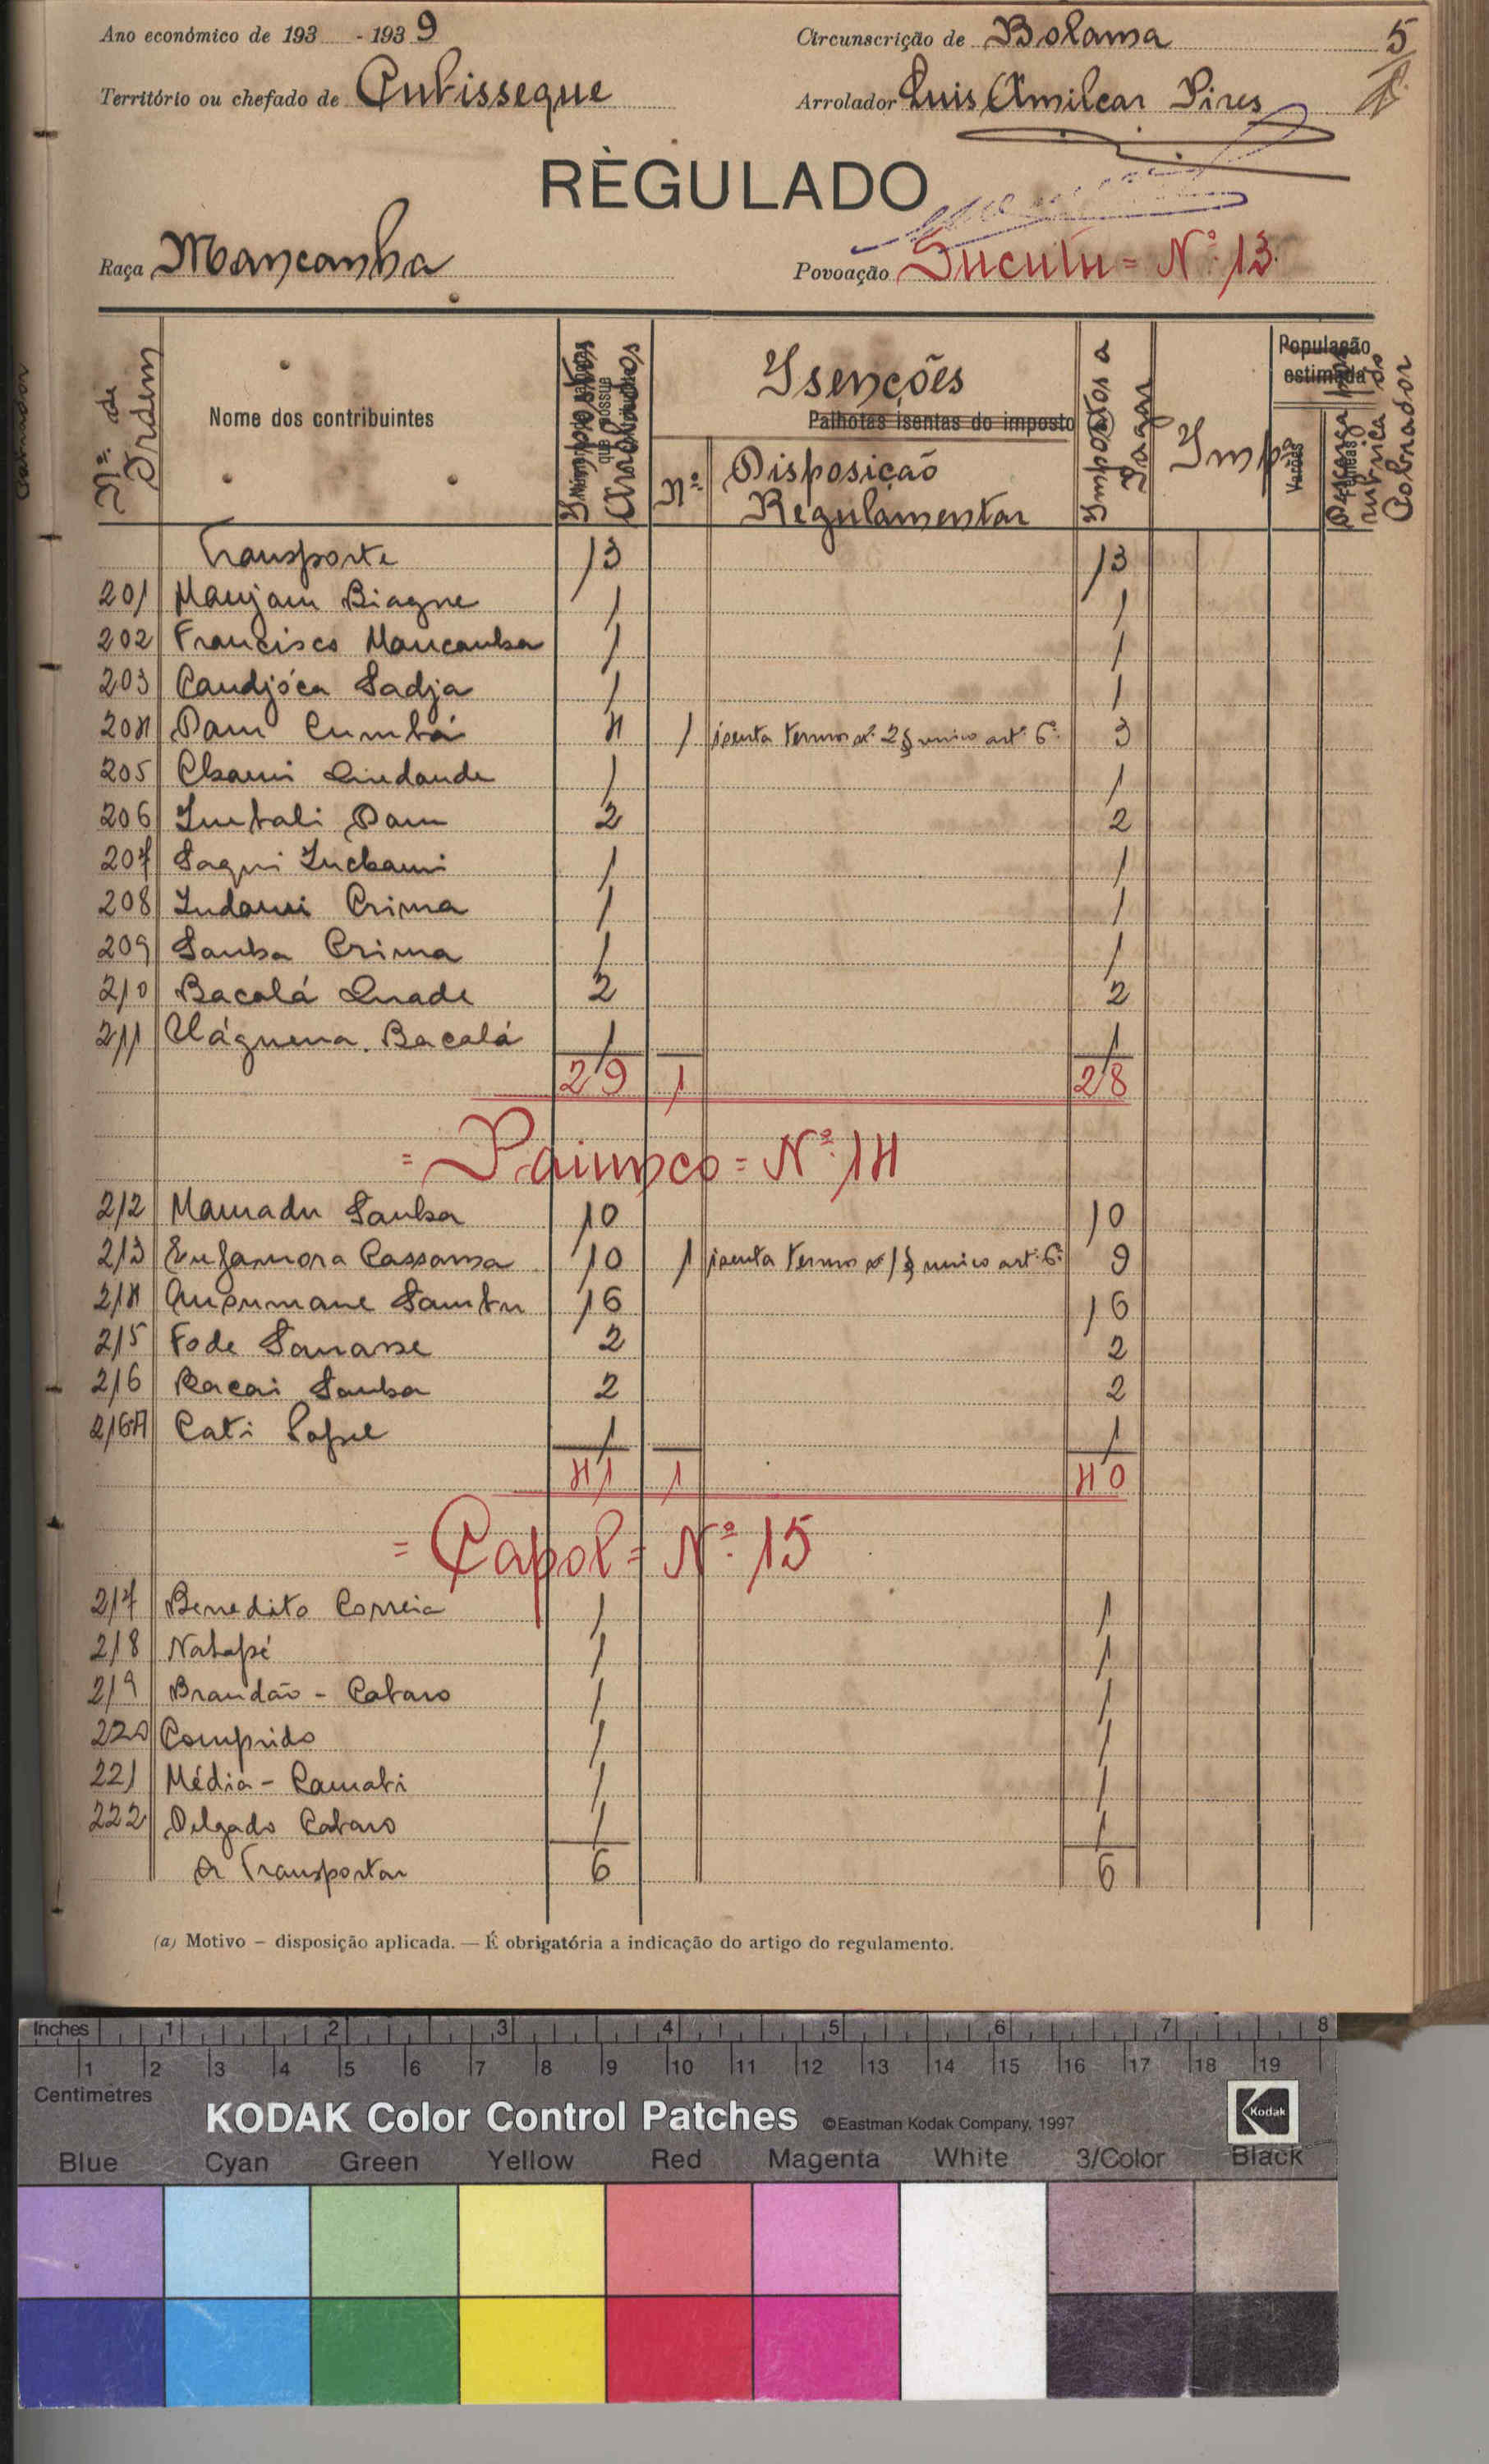 Ano económico de 193 - 1939
Circunscrição de Bolama
5
Território ou chefado de Cubisseque
Arrolador Luis Amilcar Pires
RÈGULADO
Raça Mancanha
Povoação Sucutu = Nº 13
Nº de Ordem
Nome dos contribuintes
Impostos Arrolados
Isenções
Palhotas isentas do imposto
Nº
Disposição
Regulamentar
Impostos a Pagar
Impº
População
estimada
Varões
rubrica do Cobrador
Transporte 13 13
201 Manjam Biagne 1 1
202 Francisco Mancanha 1 1
203 Candjóca Sadja 1 1
204 Dam Cumbá 4 1 isenta termos nº 2 § unico artº 6º 3
205 Chami Quedande 1 1
206 Imbali Dam 2 2
207 Sagni Inchami 1 1
208 Indami Crima 1 1
209 Sanha Crima 1 1
210 Bacalá Quade 2 2
211 Uáguena Bacalá 1 1
29 1 28
= Paiunco = Nº 14
212 Mamadu Sanha 10 10
213 Enfamora Cassama 10 1 isenta termos nº 1 § unico artº 6º 9
214 Ansumane Sambu 16 16
215 Fode Sanasse 2 2
216 Racai Sanha 2 2
216A Cati Papel 1 1
41 1 40
= Capol = Nº 15
217 Benedito Correia 1 1
218 Natapé 1 1
219 Brandão - Cataro 1 1
220 Comprido 1 1
221 Média - Camati 1 1
222 Delgado Cataro 1 1
A Transportar 6 6
(a) Motivo — disposição aplicada. — É obrigatória a indicação do artigo do regulamento.
Inches 1 2 3 4 5 6 7 8
1 2 3 4 5 6 7 8 9 10 11 12 13 14 15 16 17 18 19
Centimetres
KODAK Color Control Patches ©Eastman Kodak Company, 1997 Kodak
Blue Cyan Green Yellow Red Magenta White 3/Color Black